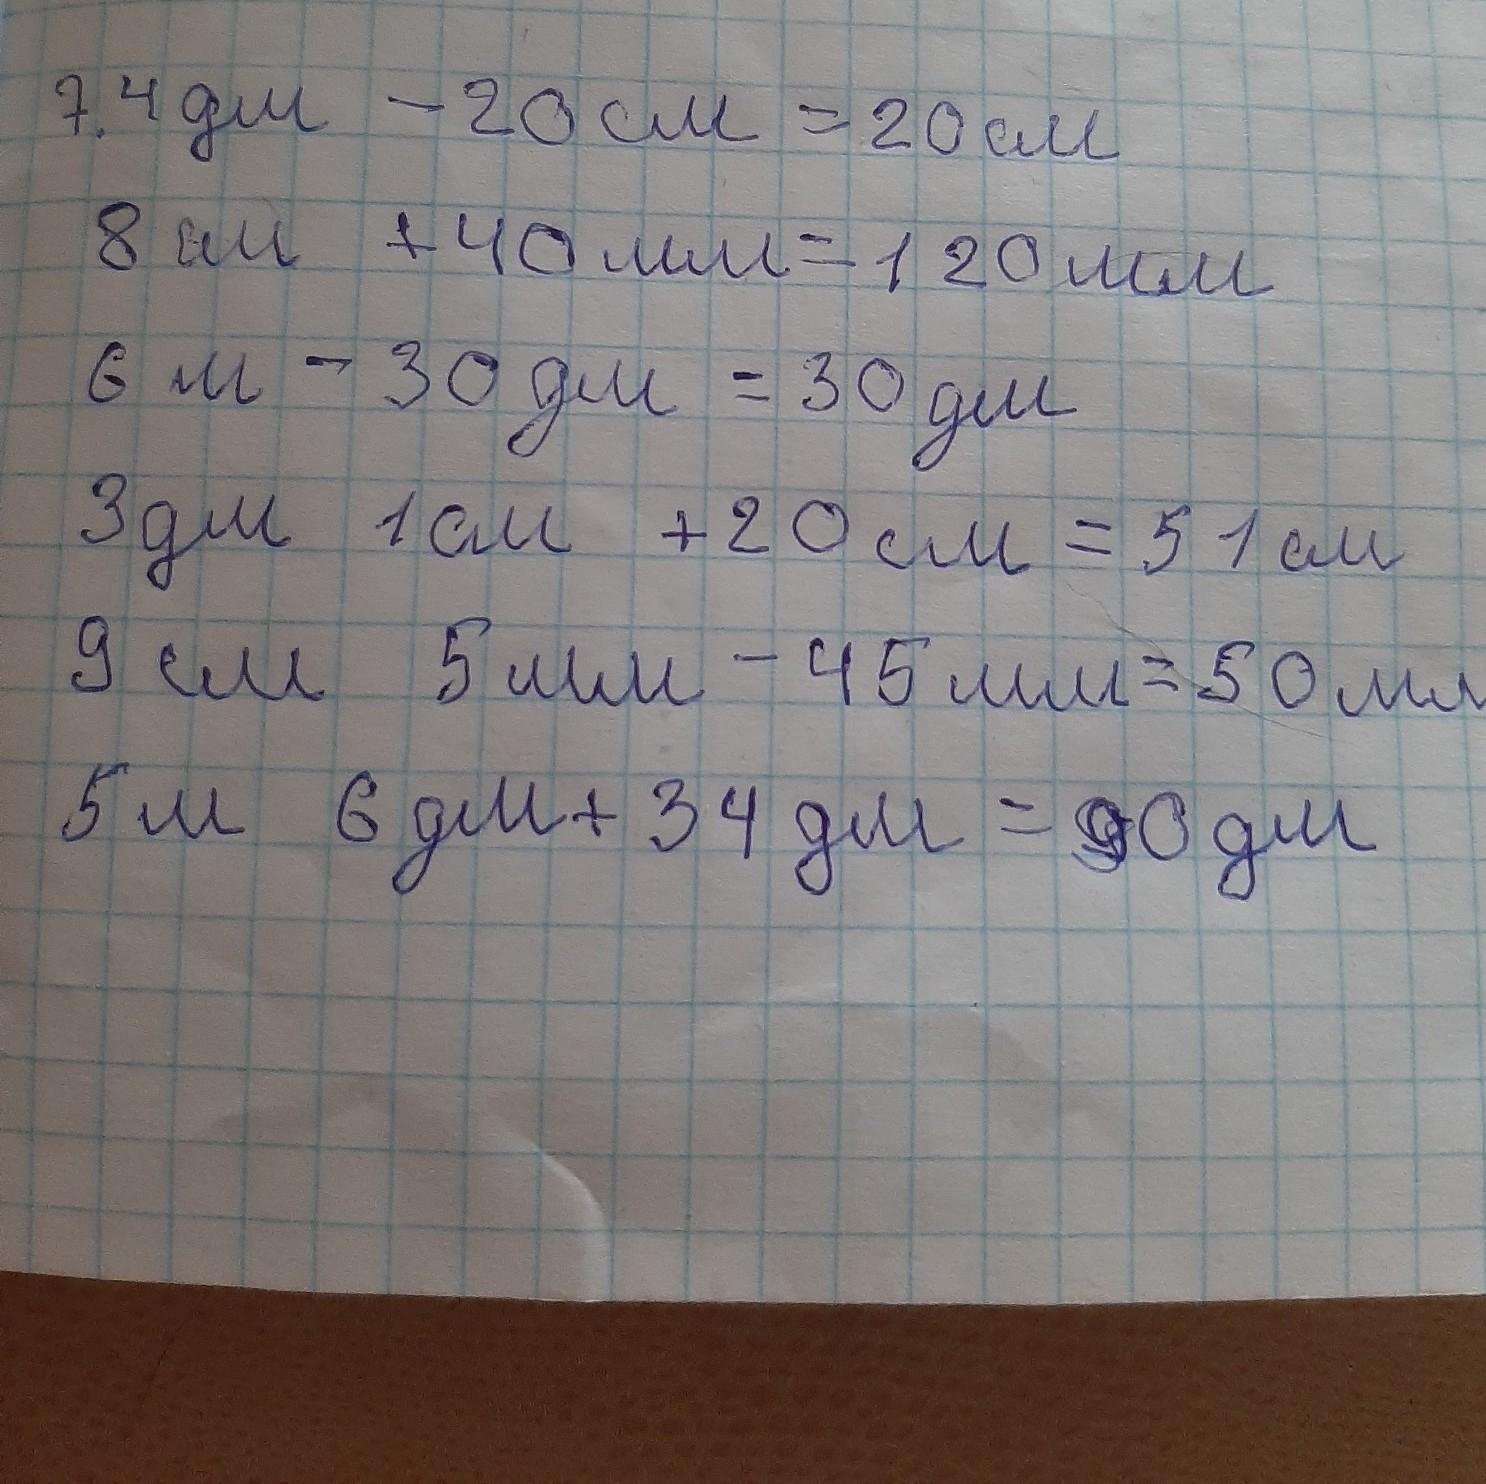 7. 4 дм - 20 см = 20 см
8 см + 40 мм = 120 мм
6 м - 30 дм = 30 дм
3 дм 1 см + 20 см = 51 см
9 см 5 мм - 45 мм = 50 мм
5 м 6 дм + 34 дм = 90 дм